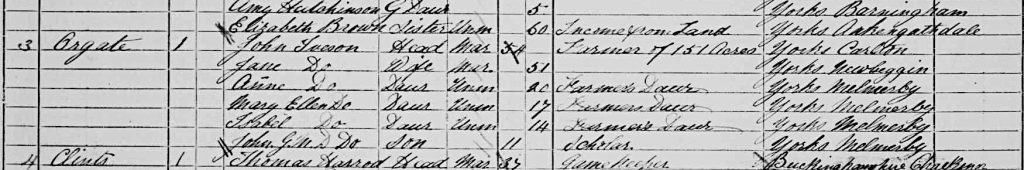 Amy Hutchinson G Daur 5 Yorks Barningham
Elizabeth Brown Sister Unm 60 Income from Land Yorks Arkengathdale
3 Orgate 1 John Head Mar 54 Farmer of 151 Acres Yorks Carlton
Jane Do Wife Mar. 51 Yorks Newbiggin
Anne Do Daur Unm 20 Farmers Daur Yorks Melmerby
Mary Ellen Do Daur Unm 17 Farmers Daur Yorks Melmerby
Isabil Do Daur Unm 14 Farmers Daur Yorks Melmerby
John. G. Do Son 11 Scholar Yorks Melmerby
4 Clints 1 Thomas Harrod Head Mar 37 Game Keeper Buckinghamshire